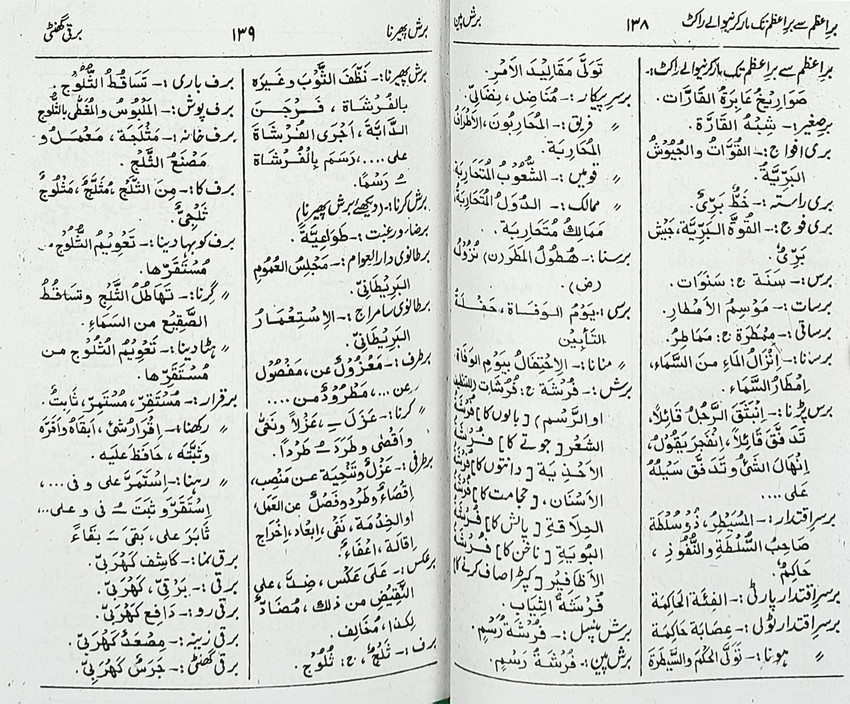 براعظم سے براعظم تک مار کرنیوالے راکٹ
۱۳۸
برش پین
براعظم سے براعظم تک مار کرنیوالے راکٹ:-
صَوَارِيْخُ عَابِرَةُ القَارَّات.
برصغیر:- شِبْهُ القَارَّة.
بری افواج:- القُوَّاتُ والجُيُوْشُ
البَرِّيَّةُ.
بری راستہ:- خَطٌّ بَرِّيٌّ.
بری فوج:- القُوَّةُ البَرِّيَّة، جَيْش
بَرِّيٌّ.
برس:- سَنَة ج: سَنَوَات.
برسات:- مَوْسِمُ الأمْطار.
برساتی:- مِمْطَرَة ج: مَمَاطِرُ.
برسانا:- إنْزَالُ المَاءِ مِنَ السَّمَاء،
إمْطَارُ السَّمَاء.
برس پڑنا:- اِنْبَثَقَ الرَّجُلُ قَائِلًا،
تَدَفَّقَ قَائِلًا، اِنْفَجَرَ يَقُوْلُ،
اِنْهَالَ الشَّيْءُ وتَدَفَّقَ سَيْلُهُ
عَلى ....
برسراقتدار:- المُسَيْطِرُ، ذُوسُلْطَة
صَاحِبُ السُّلْطَةِ والنُّفُوْذِ،
حَاكِمٌ.
برسراقتدار پارٹی:- الفِئَةُ الحَاكِمَة
برسراقتدار ٹولی:- عِصَابَة حَاكِمَة
〃 ہونا:- تَوَلَّى الحُكْمَ والسَّيْطَرَة
تَوَلَّى مَقَالِيْدَ الأمْرِ.
برسرپیکار:- مُنَاضِل، نِضَالِيّ.
〃 فریق:- المُحَارِبُوْن، الأطْرَافُ
المُحَارِبَة.
〃 قومیں:- الشُّعُوْبُ المُتَحَارِبَة
〃 ممالک:- الدُّوَلُ المُتَحَارِبَة
مَمَالِكُ مُتَحَارِبَة.
برسنا:- هُطُوْلُ المَطَر (ن) نُزُوْلُ
(ض).
برسی: يَوْمُ الوَفَاة، حَفْلَةُ
التَّأبِيْن
〃 منانا:- الاِحْتِفَالُ بِيَوْمِ الوَفَاة
برش:- فُرْشَة ج: فُرْشَات
او الرَّسْم) [بالوں کا] فُرْشَةُ
الشَّعْرِ [جوتے کا] فُرْشَةُ
الأحْذِيَة [دانتوں کا] فُرْشَةُ
الأسْنَان، [حجامت کا] فُرْشَةُ
الحِلَاقَة [پالش کا] فُرْشَةُ
البُوْيَة [ناخن کا] فُرْشَةُ
الأظَافِيْر [کپڑا صاف کرنے کا]
فُرْشَةُ الثِّيَاب.
برش پنسل:- فُرْشَةُ رَسْمٍ.
برش پین:- فُرْشَةُ رَسْمٍ.
برش پھیرنا
۱۳۹
برقی گھنٹی
برش پھیرنا:- نَظَّفَ الثَّوْبَ وغَيْرَه
بِالفُرْشَاة، فَرْجَنَ
الدَّابَّة، أجْرَى الفُرْشَاةَ
على....، رَسَمَ بِالْفُرْشَاة
ـُ رَسْمًا.
برش کرنا:- (دیکھئے برش پھیرنا)
برضا ورغبت:- طَوَاعِيَّةً.
برطانوی دارالعوام:- مَجْلِسُ العُمُوْم
البَرِيْطَانِيّ.
برطانوی سامراج:- الاِسْتِعْمَارُ
البَرِيْطَانِيّ.
برطرف:- مَعْزُوْلٌ عَنْ، مَفْصُوْل
عن ...، مَطْرُوْدٌ من ....
〃 کرنا:- عَزَلَ ـِ، عَزْلًا ونَفَى
وأقْصَى وطَرَدَ ـُ طَرْدًا.
برطرفی:- عَزْلٌ وتَنْحِيَة عن مَنْصِب،
إقْصَاءٌ وطَرْد وفَصْلٌ عن العَمَل،
او الخِدْمَة، نَفْى، إبْعَاد، إخْرَاج
إقَالَة، إعْفَاءٌ.
برعکس:- عَلَى عَكْس، ضِدّ، على
النَّقِيْضِ من ذلك، مُضَادٌّ
لِكَذا، مُخَالِف.
برف:- ثَلْجٌ، ج: ثُلُوْج.
برف باری:- تَسَاقُطُ الثُّلُوْج.
برف پوش:- المَلْبُوْسُ والمُغَطَّى بِالثُّلُوْج
برف خانہ:- مَثْلَجَة، مَعْمَلُ و
مَصْنَعُ الثَّلْج.
برف کا:- مِنَ الثَّلْجِ، مُثَلَّجٌ، مَثْلُوْجٌ
ثَلْجِيٌّ.
برف کو بہا دینا:- تَعْوِيْمُ الثُّلُوْج..
مُسْتَقَرّها.
〃 گرنا:- تَهَاطُلُ الثَّلْجِ وتَسَاقُطُ
الصَّقِيْعِ من السَّمَاءِ.
〃 ہٹا دینا:- تَعْوِيْمُ الثُّلُوْجِ من
مُسْتَقَرِّها.
برقرار:- مُسْتَقِرّ، مُسْتَمِرّ، ثَابِتٌ.
〃 رکھنا:- إقْرَارُ شَيْءٍ، أبْقَاهُ وأقَرَّه
وثَبَّتَه، حَافَظَ عليه.
〃 رہنا:- اِسْتَمَرَّ على و فى ...،
اِسْتَقَرَّ و ثَبَتَ ـُ فى و على...
ثَابَرَ على، بَقِيَ ـَ بَقَاءً
برق نما:- كَاشِف كَهْرَبِيّ.
برقی:- بَرْقِيّ، كَهْرَبِيّ.
برقی رو:- دَافِع كَهْرَبِيّ.
برقی زینہ:- مِصْعَدٌ كَهْرَبِيّ.
برقی گھنٹی:- جَرَسٌ كَهْرَبِيّ.